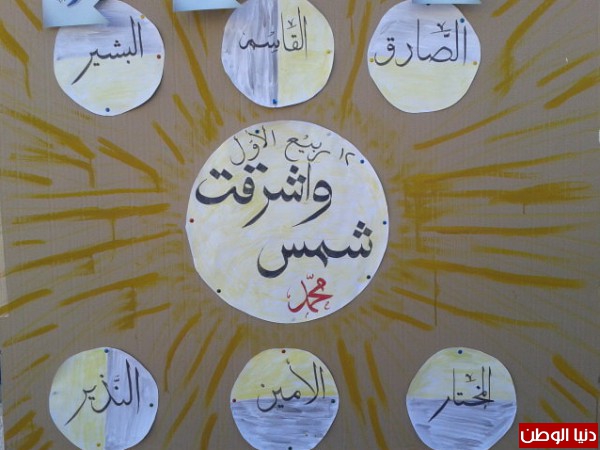 الصَّارق
القَاسِم
البشير
١٢ ربيع الأول
واشرقت
شمس
محمّد
المختار
الأمين
النَّذير
دنيا الوطن